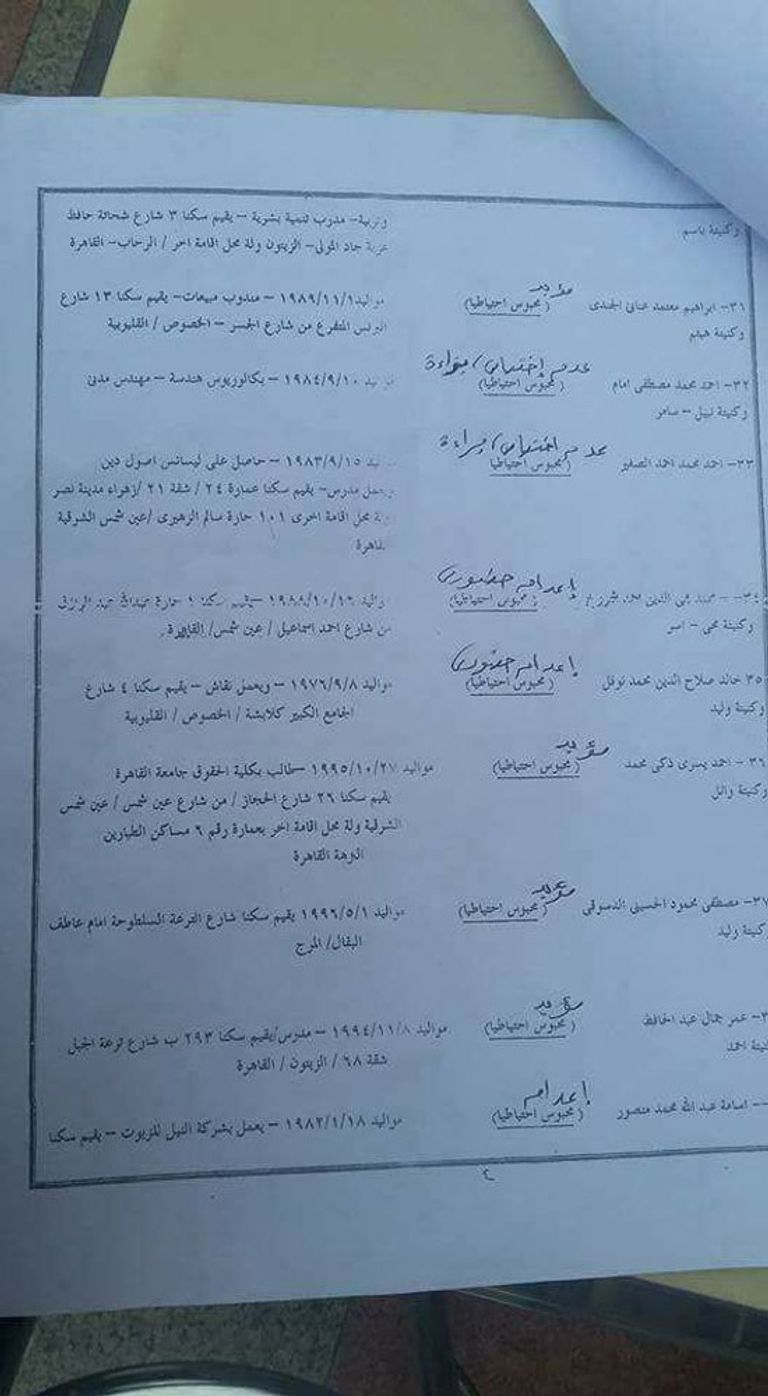 وكنيتة باسم
وتربية- مدرب تنمية بشرية – يقيم سكنا ٣ شارع شحاتة حافظ
عزبة جاد المولى- الزيتون ولة محل اقامة اخر / الرحاب- القاهرة
٣١- ابراهيم معتمد عنانى الجندى
وكنيتة هيثم
مؤبد
(محبوس احتياطيا)
مواليد ١٩٨٩/١١/١ – مندوب مبيعات- يقيم سكنا ١٣ شارع
البرنس المتفرع من شارع الجسر – الخصوص / القليوبية
٣٢- احمد محمد مصطفى امام
وكنيتة نبيل – سامر
عدم إختصاص / براءة
(محبوس احتياطيا)
١٩٨٤/٩/١٠ – بكالوريوس هندسة – مهندس مدنى
٣٣- احمد محمد احمد الصغير
عدم اختصاص / براءة
(محبوس احتياطيا)
١٩٨٣/٩/١٥ – حاصل على ليسانس اصول دين
ويعمل مدرس– يقيم سكنا عمارة ٢٤ / شقة ٢١ /زهراء مدينة نصر
ولة محل اقامة اخرى ١٠١ حارة سالم الزهيرى /عين شمس الشرقية
القاهرة
٣٤- محمد محى الدين محمد
وكنيتة محى –
إعدام حضورى
(محبوس احتياطيا)
١٩٨٨/١٠/١٦ –يقيم سكنا ١ حارة عبدالله عبد الرازق
من شارع احمد اسماعيل / عين شمس/ القاهرة
٣٥ خالد صلاح الدين محمد نوفل
وكنيتة وليد
إعدام حضورى
(محبوس احتياطيا)
مواليد ١٩٧٦/٩/٨ – ويعمل نقاش – يقيم سكنا ٤ شارع
الجامع الكبير كلابشة / الخصوص / القليوبية
٣٦ – احمد يسرى ذكى محمد
وكنيتة وائل
مؤبد
(محبوس احتياطيا)
مواليد ١٩٩٥/١٠/٢٧ –طالب بكلية الحقوق جامعة القاهرة
يقيم سكنا ٢٦ شارع الحجاز / من شارع عين شمس / عين شمس
الشرقية ولة محل اقامة اخر بعمارة رقم ٦ مساكن الطيارين
النزهة القاهرة
٣٧- مصطفى محمود الحسينى الدسوقى
وكنيتة وليد
مؤبد
(محبوس احتياطيا)
مواليد ١٩٩٦/٥/١ يقيم سكنا شارع الترعة السلطوحة امام عاطف
البقال/ المرج
عمر جمال عبد الحافظ
كنيتة احمد
مؤبد
(محبوس احتياطيا)
مواليد ١٩٩٤/١١/٨ – مدرس/يقيم سكنا ٢٩٣ ب شارع ترعة الجبل
شقة ٦٨ / الزيتون / القاهرة
اسامة عبد الله محمد منصور
إعدام
(محبوس احتياطيا)
مواليد ١٩٨٢/١/١٨ – يعمل بشركة النيل للزيوت – يقيم سكنا
٤